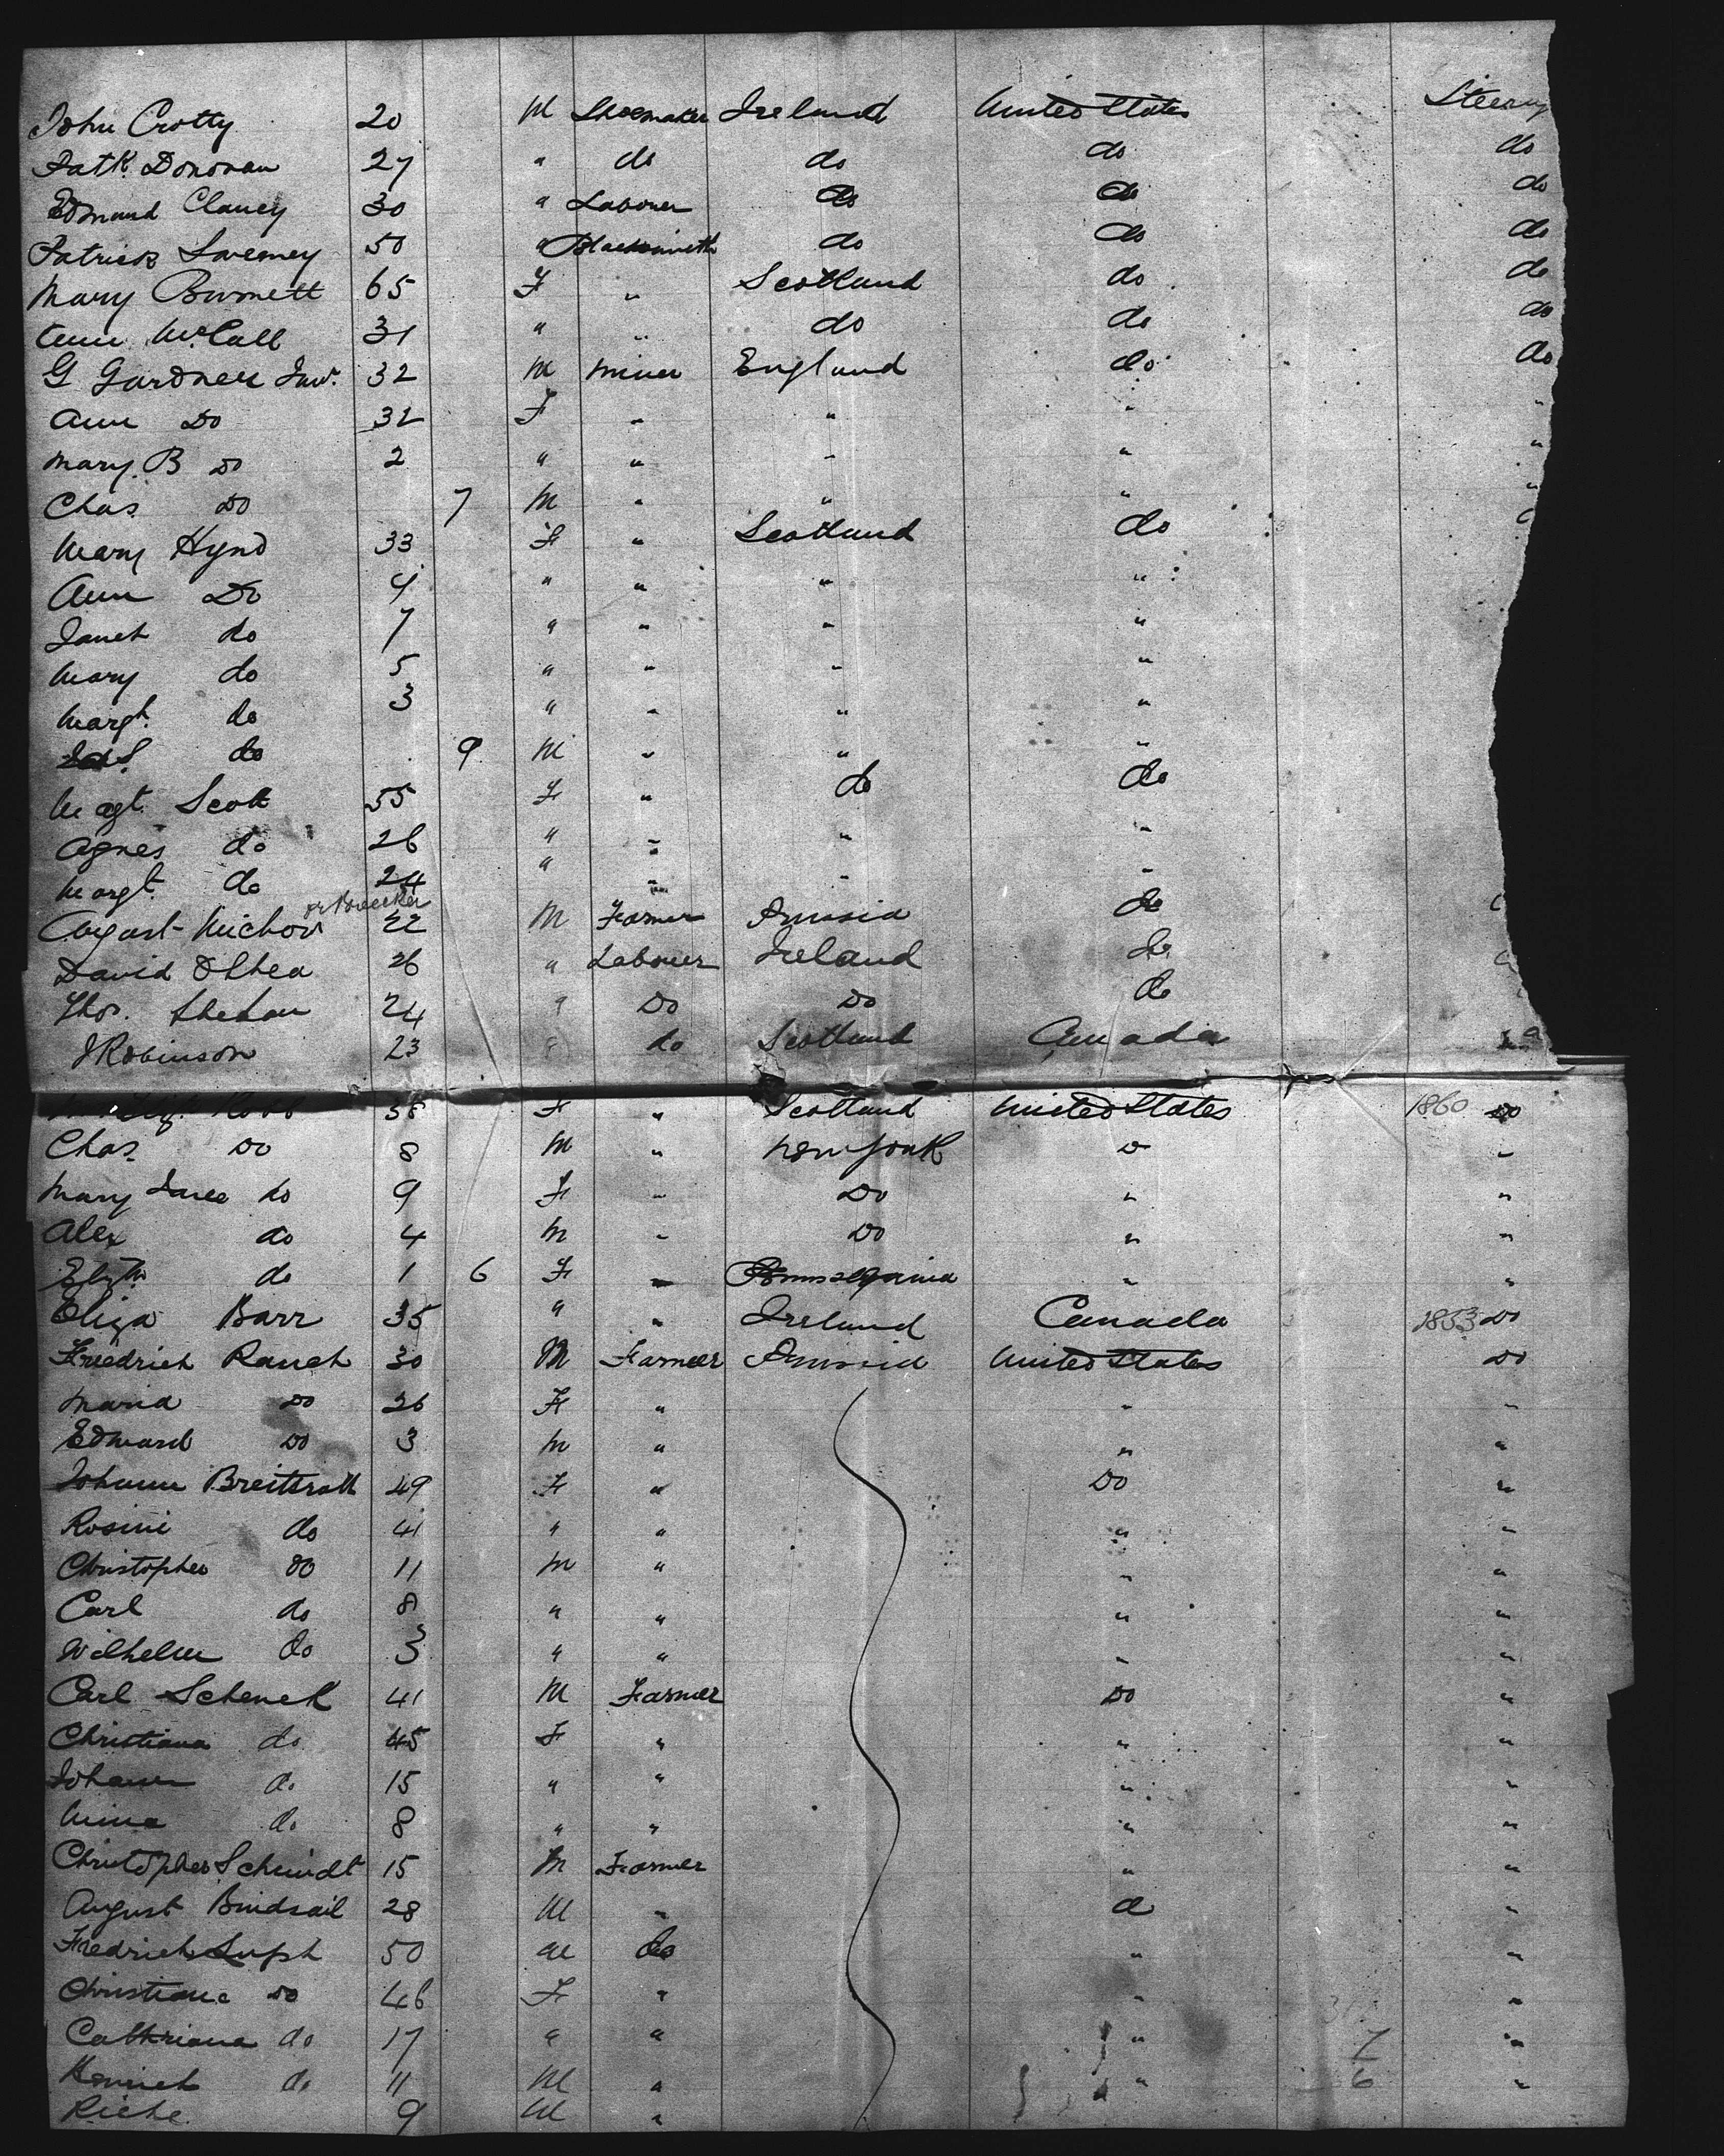 John Crotty 20 M Shoemaker Ireland United States Steerag
Patk. Donovan 27 " do do do do
Edmund Clancy 30 " Laborer do do do
Patrick Sweeney 50 " Blacksmith do do do
Mary Burnett 65 F " Scotland do do
Ann McCall 31 " " do do do
G Gardner Junr. 32 M Miner England do do
Ann Do 32 F " " " "
Mary B Do 2 " " " " "
Chas. Do 7 M " " " "
Mary Hynd 33 F " Scotland do
Ann Do 9 " " " "
Janet do 7 " " " "
Mary do 5 " " " "
Margt. do 3 " " " "
do 9 M " " "
Magt. Scott 55 F " do do
Agnes do 26 " " " "
Margt. do 24 " " " "
August 22 M Farmer Prussia do
David O'Shea 26 " Laborer Ireland do
Thos. Shehan 24 " Do Do do
J Robinson 23 " do Scotland Canada
Robb 38 F " Scotland United States 1860 Do
Chas. Do 8 M " New York D "
Mary Jane do 9 F " Do " "
Alex do 4 M " Do " "
Elizth do 1 6 F " Pennsylvania " "
Eliza Barr 35 " " Ireland Canada 1853 Do
Friedrich Rauch 30 M Farmer Prussia United States Do
Maria Do 26 F " " "
Edward Do 3 M " " "
Johann Breitbrath 49 F " Do "
Rosini do 41 " " " "
Christopher do 11 M " " "
Carl do 8 " " " "
Wilhelm do 3 " " " "
Carl Schenck 41 M Farmer Do "
Christiana do 45 F " " "
Johann do 15 " " " "
Mina do 8 " " " "
Christopher Schmidt 15 M Farmer " "
August Bindsail 28 M " d "
Friedrich Luph 50 M do " "
Christiana do 46 F " " "
Cathriana do 17 " " " 7 "
Henrich do 11 M " " 6 "
Riche 9 M "